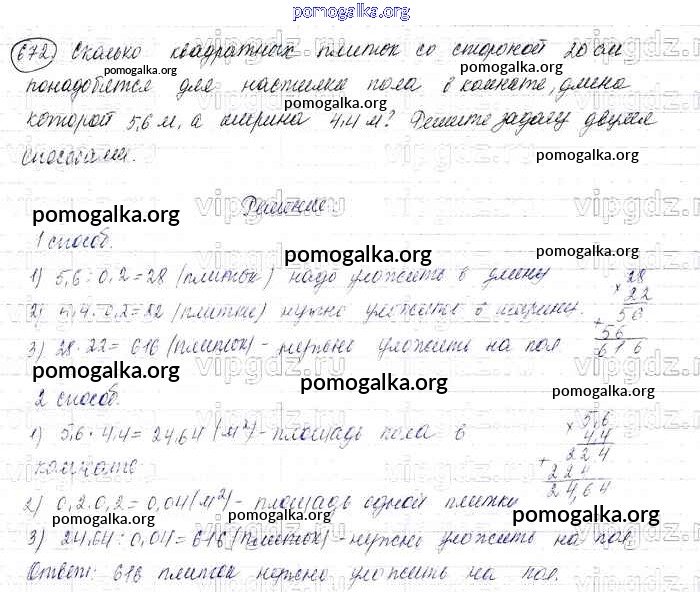 pomogalka.org
672) Сколько квадратных плиток со стороной 20 см
pomogalka.org pomogalka.org
понадобится для настилки пола в комнате, длина
pomogalka.org
которой 5,6 м, а ширина 4,4 м? Решите задачу двумя
способами.
pomogalka.org
Решение:
pomogalka.org vipgdz.ru
1 способ.
pomogalka.org pomogalka.org
1) 5,6 : 0,2 = 28 (плиток) надо уложить в длину
28
× 22
2) 4,4 : 0,2 = 22 (плитки) нужно уложить в ширину.
56
+ 56
3) 28 · 22 = 616 (плиток) - нужно уложить на пол
616
pomogalka.org pomogalka.org
2 способ.
pomogalka.org
1) 5,6 · 4,4 = 24,64 (м²) - площадь пола в
× 5,6
4,4
комнате
+ 224
224
24,64
2) 0,2 · 0,2 = 0,04 (м²) - площадь одной плитки
pomogalka.org pomogalka.org pomogalka.org
3) 24,64 : 0,04 = 616 (плиток) - нужно уложить на пол
Ответ: 616 плиток нужно уложить на пол.